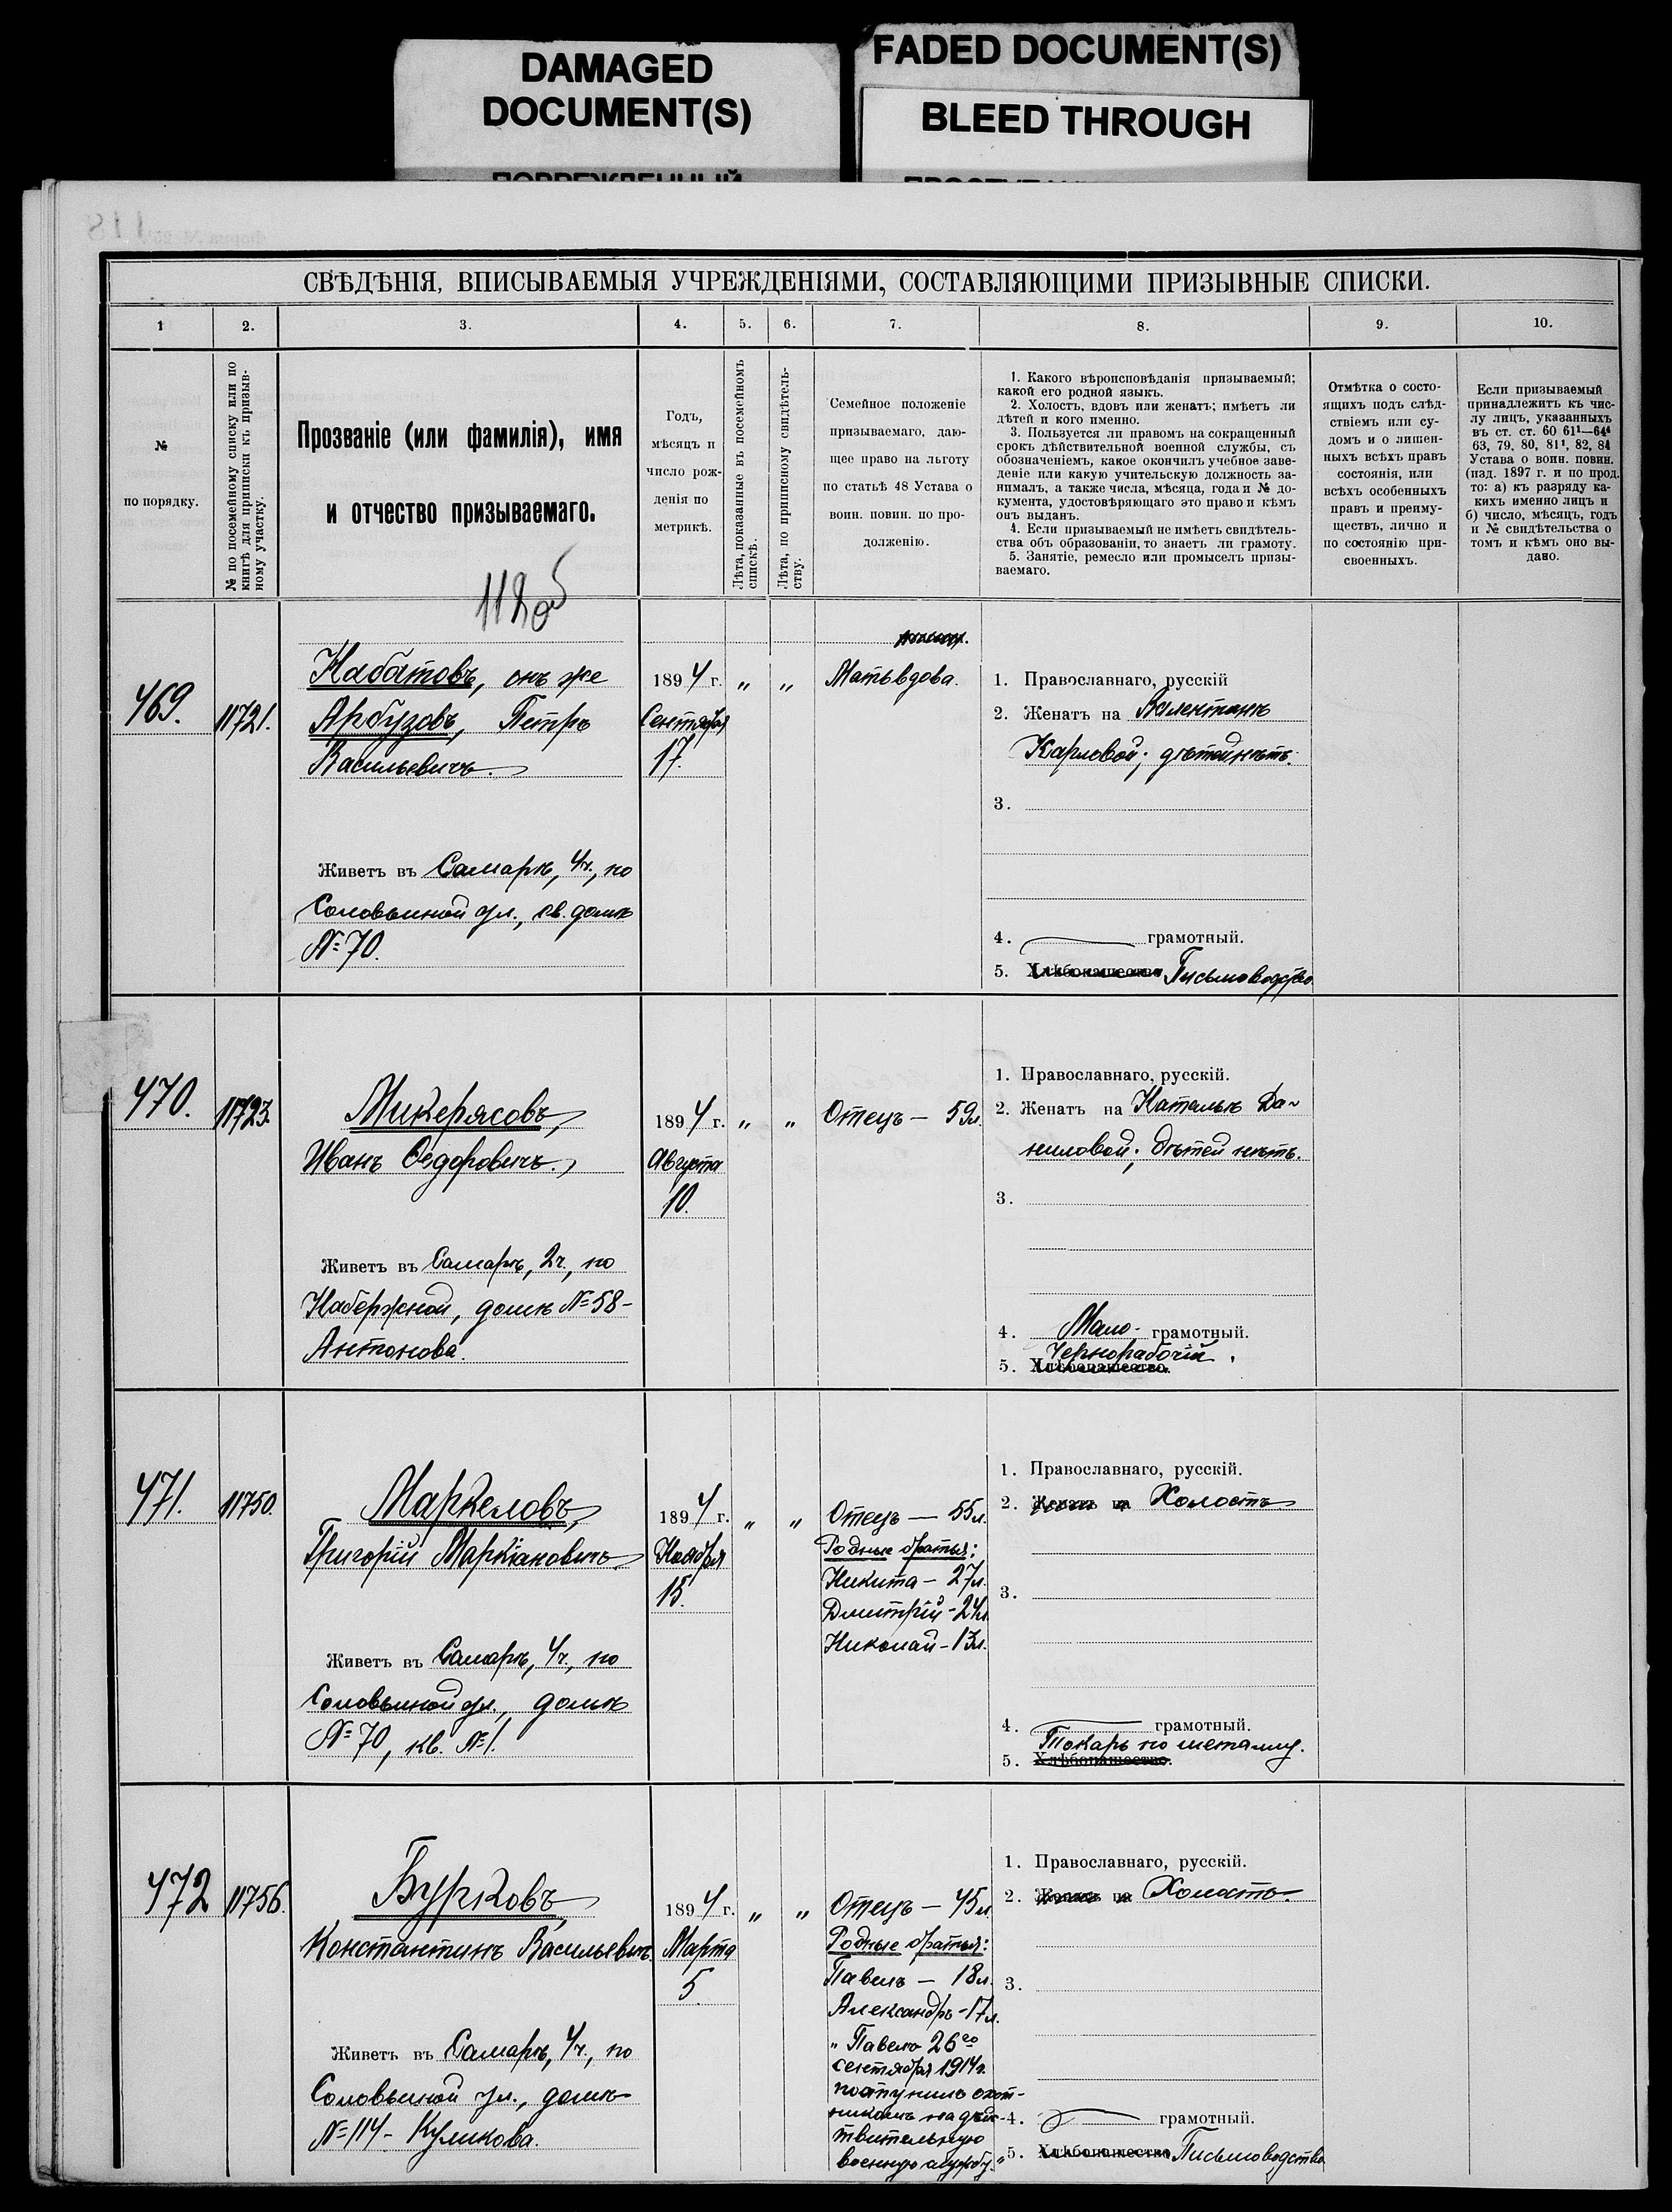 DAMAGED
DOCUMENT(S)
FADED DOCUMENT(S)
BLEED THROUGH
СВѢДѢНІЯ, ВПИСЫВАЕМЫЯ УЧРЕЖДЕНІЯМИ, СОСТАВЛЯЮЩИМИ ПРИЗЫВНЫЕ СПИСКИ.
1 2. 3. 4. 5. 6. 7. 8. 9. 10.
№
по порядку.
№ по посемейному списку или по
книгѣ для приписки къ призыв-
ному участку.
Прозваніе (или фамилія), имя
и отчество призываемаго.
Годъ,
мѣсяцъ и
число рож-
денія по
метрикѣ.
Лѣта, показанные въ посемейномъ
спискѣ.
Лѣта, по приписному свидѣтель-
ству.
Семейное положеніе
призываемаго, даю-
щее право на льготу
по статьѣ 48 Устава о
воин. повин. по про-
долженію.
1. Какого вѣроисповѣданія призываемый;
какой его родной языкъ.
2. Холостъ, вдовъ или женатъ; имѣетъ ли
дѣтей и кого именно.
3. Пользуется ли правомъ на сокращенный
срокъ дѣйствительной военной службы, съ
обозначеніемъ, какое окончилъ учебное заве-
деніе или какую учительскую должность за-
нималъ, а также числа, мѣсяца, года и № до-
кумента, удостовѣряющаго это право и кѣмъ
онъ выданъ.
4. Если призываемый не имѣетъ свидѣтель-
ства объ образованіи, то знаетъ ли грамоту.
5. Занятіе, ремесло или промыселъ призы-
ваемаго.
Отмѣтка о состо-
ящихъ подъ слѣд-
ствіемъ или су-
домъ и о лишен-
ныхъ всѣхъ правъ
состоянія, или
всѣхъ особенныхъ
правъ и преиму-
ществъ, лично и
по состоянію при-
своенныхъ.
Если призываемый
принадлежитъ къ чис-
лу лицъ, указанныхъ
въ ст. ст. 60 61¹—64⁴
63, 79, 80, 81¹, 82, 84
Устава о воин. повин.
(изд. 1897 г. и по прод.
то: а) къ разряду ка-
кихъ именно лицъ и
б) число, мѣсяцъ, годъ
и № свидѣтельства о
томъ и кѣмъ оно вы-
дано.
112об
469.
11721.
Набатовъ, онъ же
Арбузовъ, Петръ
Васильевичъ.
Живетъ въ Самарѣ, 4ч., по
Соловьиной ул., св. домѣ
№ 70.
1894 г.
Сентября
17.
" "
Мать вдова.
1. Православнаго, русскій
2. Женатъ на Валентинѣ
Карловой; дѣтей нѣтъ.
3.
4. грамотный.
5. Хлѣбопашество Письмоводство.
470.
11723.
Микерясовъ,
Иванъ Ѳедоровичъ.
Живетъ въ Самарѣ, 2ч., по
Набережной, домѣ № 58-
Антонова.
1894 г.
Августа
10.
" "
Отецъ — 59 л.
1. Православнаго, русскій.
2. Женатъ на Натальѣ Да-
ниловой; дѣтей нѣтъ.
3.
4. Мало-грамотный.
Чернорабочій.
5. Хлѣбопашество.
471.
11750.
Маркеловъ,
Григорій Маркіановичъ
Живетъ въ Самарѣ, 4ч., по
Соловьиной ул., домѣ
№ 70, кв. № 1.
1894 г.
Ноября
15.
" "
Отецъ — 55 л.
Родные братья:
Никита — 27 л.
Дмитрій - 24 л.
Николай - 13 л.
1. Православнаго, русскій.
2. Женатъ на Холостъ
3.
4. грамотный.
Токарь по металлу.
5. Хлѣбопашество.
472
11756.
Бурковъ,
Константинъ Васильевичъ
Живетъ въ Самарѣ, 4ч., по
Соловьиной ул., домѣ
№ 114 - Куликова.
1894 г.
Марта
5.
" "
Отецъ — 45 л.
Родные братья:
Павелъ — 18 л.
Александръ - 17 л.
" Павелъ 26го
сентября 1914 г.
поступилъ охот-
никомъ на дѣй-
ствительную
военную службу."
1. Православнаго, русскій.
2. Женатъ на Холостъ.
3.
4. грамотный.
5. Хлѣбопашество Письмоводство